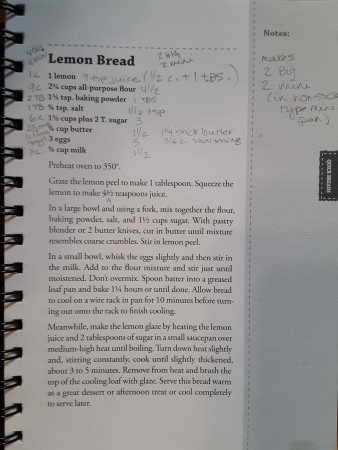 Lemon Bread
2 Big
2 mini
1 lemon 9 tsp juice (1/2 c. + 1 TBS.)
2¼ cups all-purpose flour 4 1/2
1½ tsp. baking powder 1 TBS
¾ tsp. salt 1 1/2 tsp
1½ cups plus 2 T. sugar 3
¾ cup butter 1 1/2 stick butter
3 eggs
¾ cup milk 1 1/2
Preheat oven to 350°.
Grate the lemon peel to make 1 tablespoon. Squeeze the
lemon to make 4½ teaspoons juice.
In a large bowl and using a fork, mix together the flour,
baking powder, salt, and 1½ cups sugar. With pastry
blender or 2 butter knives, cut in butter until mixture
resembles coarse crumbles. Stir in lemon peel.
In a small bowl, whisk the eggs slightly and then stir in
the milk. Add to the flour mixture and stir just until
moistened. Don't overmix. Spoon batter into a greased
loaf pan and bake 1¼ hours or until done. Allow bread
to cool on a wire rack in pan for 10 minutes before turn-
ing out onto the rack to finish cooling.
Meanwhile, make the lemon glaze by heating the lemon
juice and 2 tablespoons of sugar in a small saucepan over
medium-high heat until boiling. Turn down heat slightly
and, stirring constantly, cook until slightly thickened,
about 3 to 5 minutes. Remove from heat and brush the
top of the cooling loaf with glaze. Serve this bread warm
as a great dessert or afternoon treat or cool completely
to serve later.
Notes:
makes
2 Big
2 mini
(in nonstick
type mini
pan)
QUICK BREADS